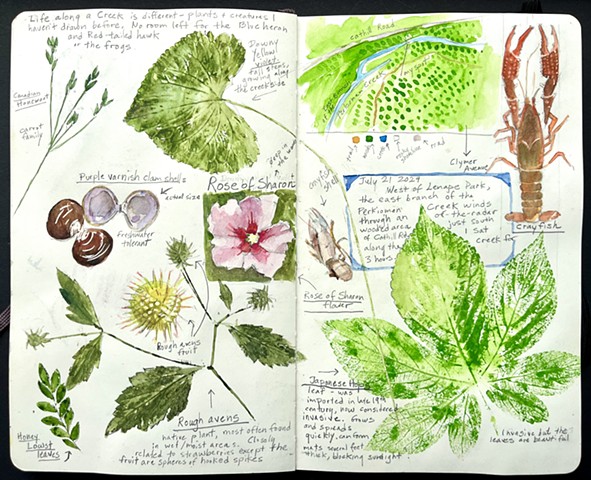 Life along a Creek is different - plants & creatures I
haven't drawn before. No room left for the Blue heron
and Red-tailed hawk
or the frogs
Canadian
Honewort
carrot
family
Downy
Yellow
violet
fall stems,
growing along
the creekside
Purple varnish clam shells
actual size
freshwater
tolerant
deep in
the woods
Rose of Sharon
Rough avens
fruit
Rough avens
native plant, most often found
in wet/moist areas. Closely
related to strawberries except the
fruit are spheres of hooked spikes
Honey
Locust
leaves
Cathill Road
Creek
road
Clymer
Avenue
Crayfish
shell
July 21 2024
West of Lenape Park,
the east branch of the
Perkiomen Creek winds
through an of-the-radar
wooded area just south
of Cathill Rd. I sat
along the creek for
3 hours
Crayfish
Rose of Sharon
flower
Japanese Hops
leaf - was
imported in late 19th
century, now considered
invasive. Grows
and spreads
quickly, can form
mats several feet
thick, blocking sunlight.
Invasive but the
leaves are beautiful.